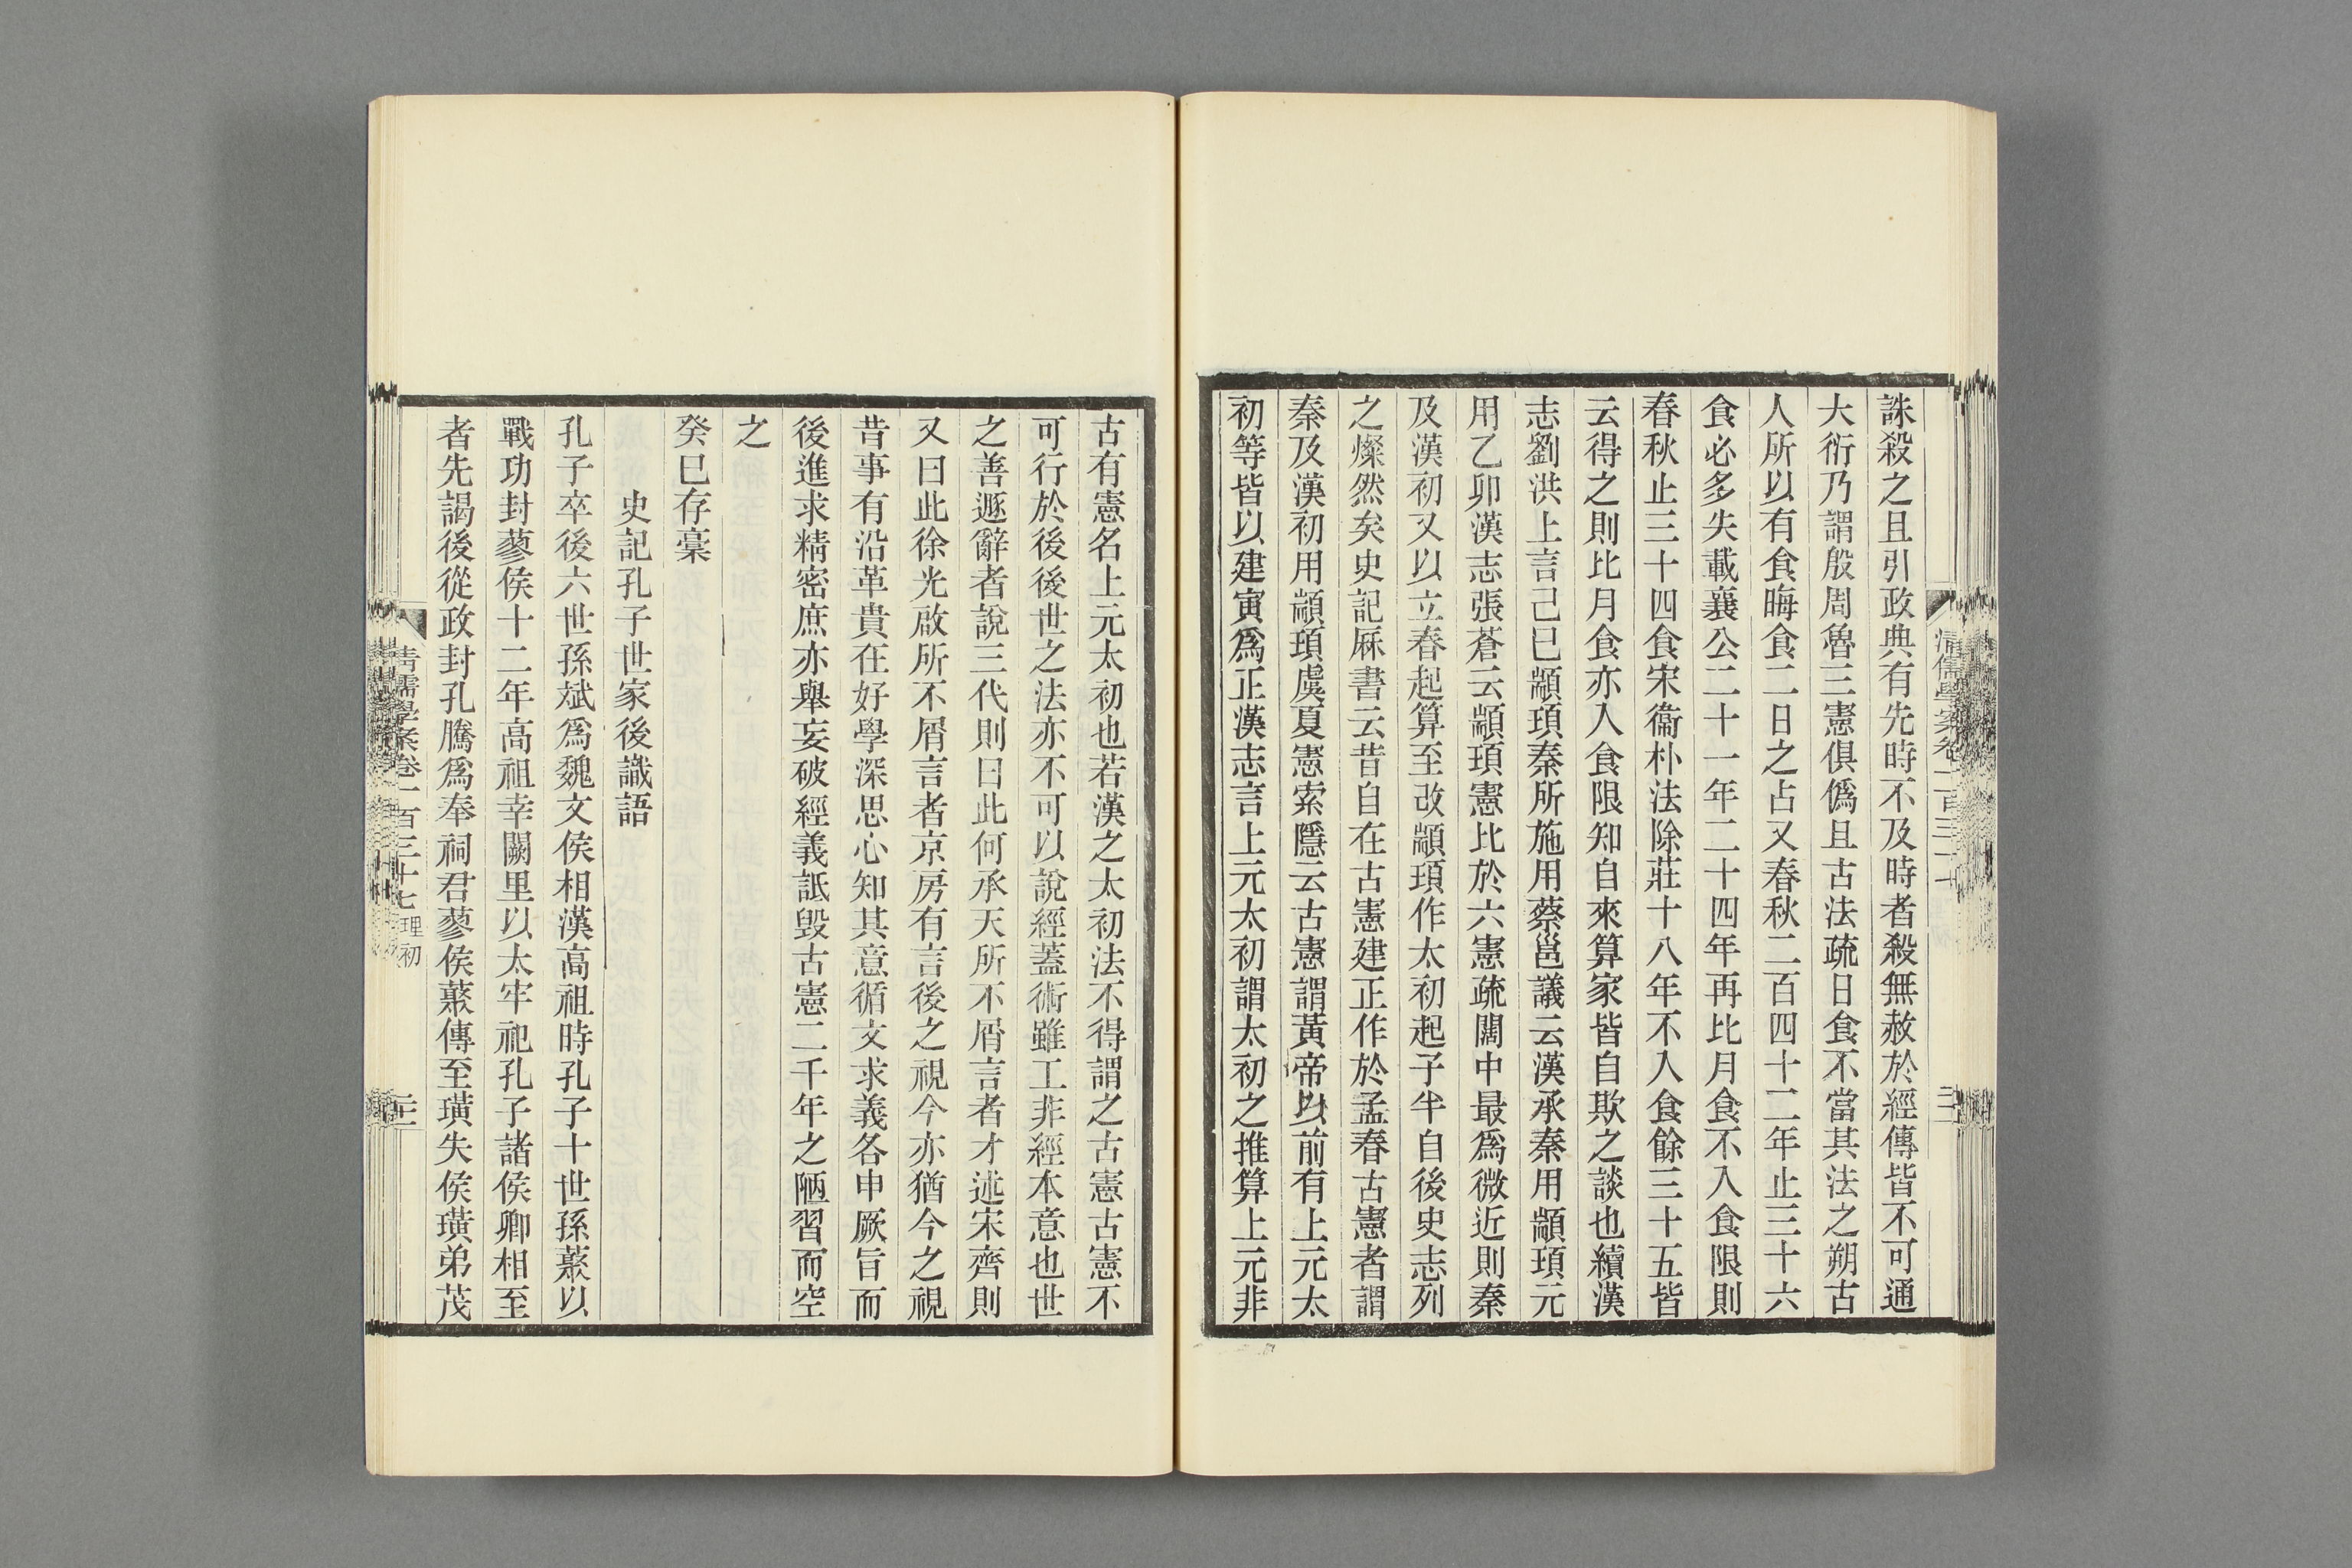 誅殺之且引政典有先時不及時者殺無赦於經傳皆不可通
大衍乃謂殷周魯三憲俱僞且古法疏日食不當其法之朔古
人所以有食晦食二日之占又春秋二百四十二年止三十六
食必多失載襄公二十一年二十四年再比月食不入食限則
春秋止三十四食宋衞朴法除莊十八年不入食餘三十五皆
云得之則比月食亦入食限知自來算家皆自欺之談也續漢
志劉洪上言己巳顓頊秦所施用蔡邕議云漢承秦用顓頊元
用乙卯漢志張蒼云顓頊憲比於六憲疏闊中最爲微近則秦
及漢初又以立春起算至改顓頊作太初起子半自後史志列
之燦然矣史記厤書云昔自在古憲建正作於孟春古憲者謂
秦及漢初用顓頊虞夏憲索隱云古憲謂黃帝以前有上元太
初等皆以建寅爲正漢志言上元太初謂太初之推算上元非
古有憲名上元太初也若漢之太初法不得謂之古憲古憲不
可行於後後世之法亦不可以說經蓋術雖工非經本意也世
之善遯辭者說三代則曰此何承天所不屑言者才述宋齊則
又曰此徐光啟所不屑言者京房有言後之視今亦猶今之視
昔事有沿革貴在好學深思心知其意循文求義各申厥旨而
後進求精密庶亦舉妄破經義詆毀古憲二千年之陋習而空
之
癸巳存稾
史記孔子世家後識語
孔子卒後六世孫斌爲魏文侯相漢高祖時孔子十世孫藂以
戰功封蓼侯十二年高祖幸闕里以太牢祀孔子諸侯卿相至
者先謁後從政封孔騰爲奉祠君蓼侯藂傳至璜失侯璜弟茂
清儒學案卷一百三十七 理初